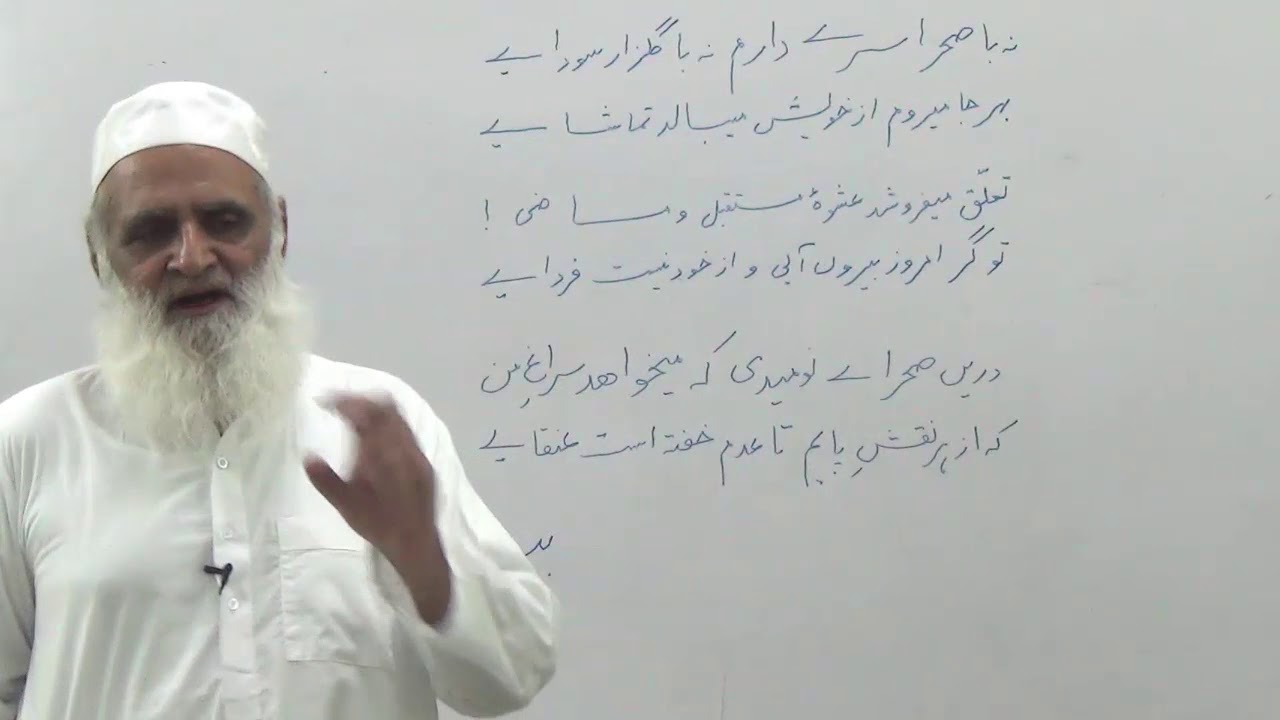 نہ با صحرا سرے دارم نہ با گلزار سودایے
بہر جا میروم از خویش میبالد تماشایے
تعلّق میفروشد عشرۂ مستقبل و ماضی !
تو گر امروز بیروں آئی و از خود نیست فردایے
دریں صحراے نومیدی کہ میخواهد سراغِ من
کہ از ہر نقشِ پایم تا عدم خفتہ است عنقایے
بد